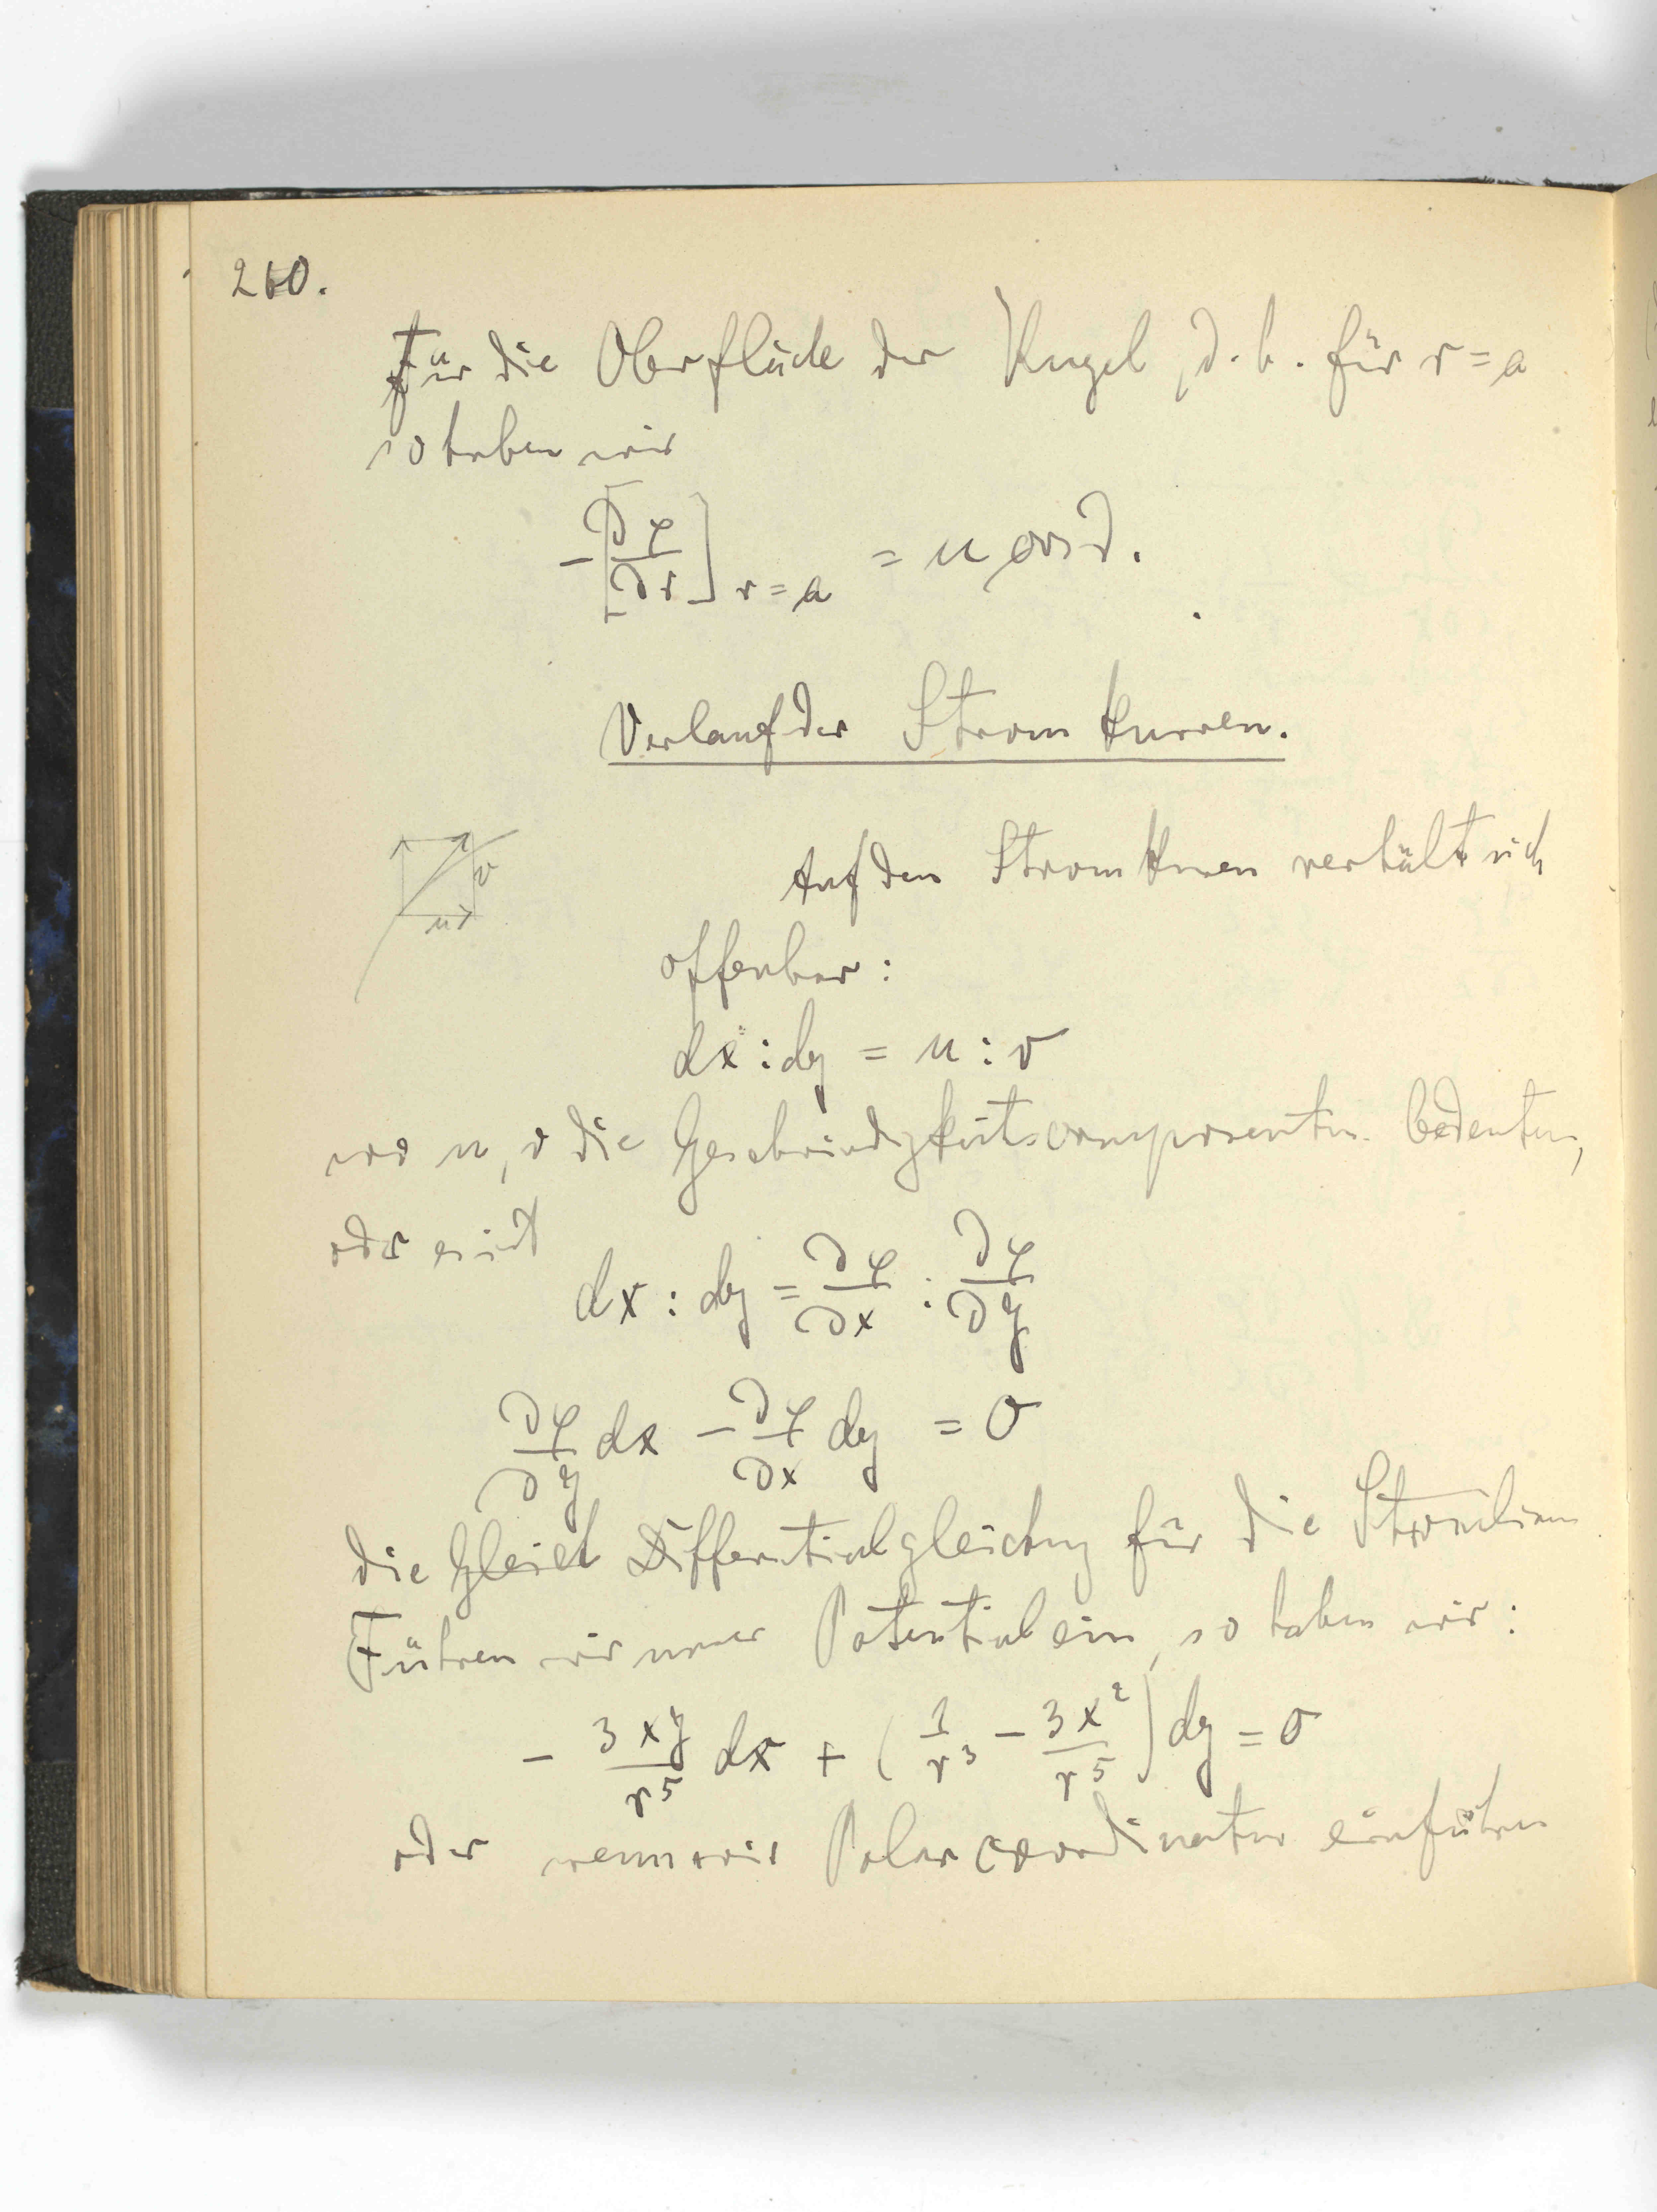 260.
Für die Oberfläche der Kugel, d. h. für r = a
so haben wir
-[∂φ/∂r] r = a = u cos ϑ.
Verlauf der Stromkurven.
v
u
Auf den Stromkurven verhält sich
offenbar:
dx : dy = u : v
wo u, v die Geschwindigkeitscomponenten bedeuten,
oder es ist
dx : dy = ∂φ/∂x : ∂φ/∂y
∂φ/∂y dx - ∂φ/∂x dy = 0
die Gleich Differentialgleichung für die Stromlinien
Führen wir unser Potential ein, so haben wir:
- 3xy/r⁵ dx + (1/r³ - 3x²/r⁵) dy = 0
oder wenn wir Polarcoordinaten einführen